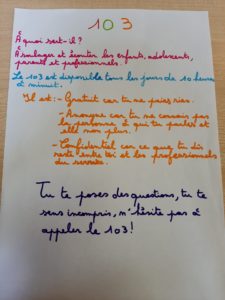 103
À quoi sert-il ?
À soulager et écouter les enfants, adolescents,
parents et professionnels.
Le 103 est disponible tous les jours de 10 heures
à minuit.
Il est : - Gratuit car tu ne paies rien.
- Anonyme car tu ne connais pas
la personne à qui tu parles et
elle non plus.
- Confidentiel car ce que tu dis
reste entre toi et les professionnels
du service.
Tu te poses des questions, tu te
sens incompris, n'hésite pas à
appeler le 103 !